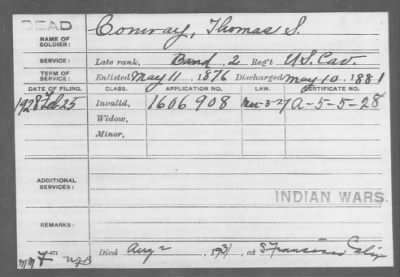 DEAD
NAME OF SOLDIER: Conway, Thomas S.
SERVICE: Late rank, Band, 2 Regt U.S. Cav.
TERM OF SERVICE: Enlisted May 11 1876 Discharged May 10. 1881
DATE OF FILING. CLASS. APPLICATION NO. LAW. CERTIFICATE NO.
1928 Feb 25 Invalid, 1606908 Mar-3-27 A-5-5-28
Widow,
Minor,
ADDITIONAL SERVICES:
INDIAN WARS.
REMARKS:
Died Aug 2 1931, at S Francisco Calif